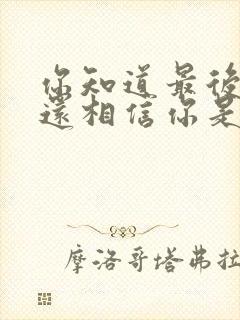 你知道最後
還相信你是
摩洛哥塔弗拉